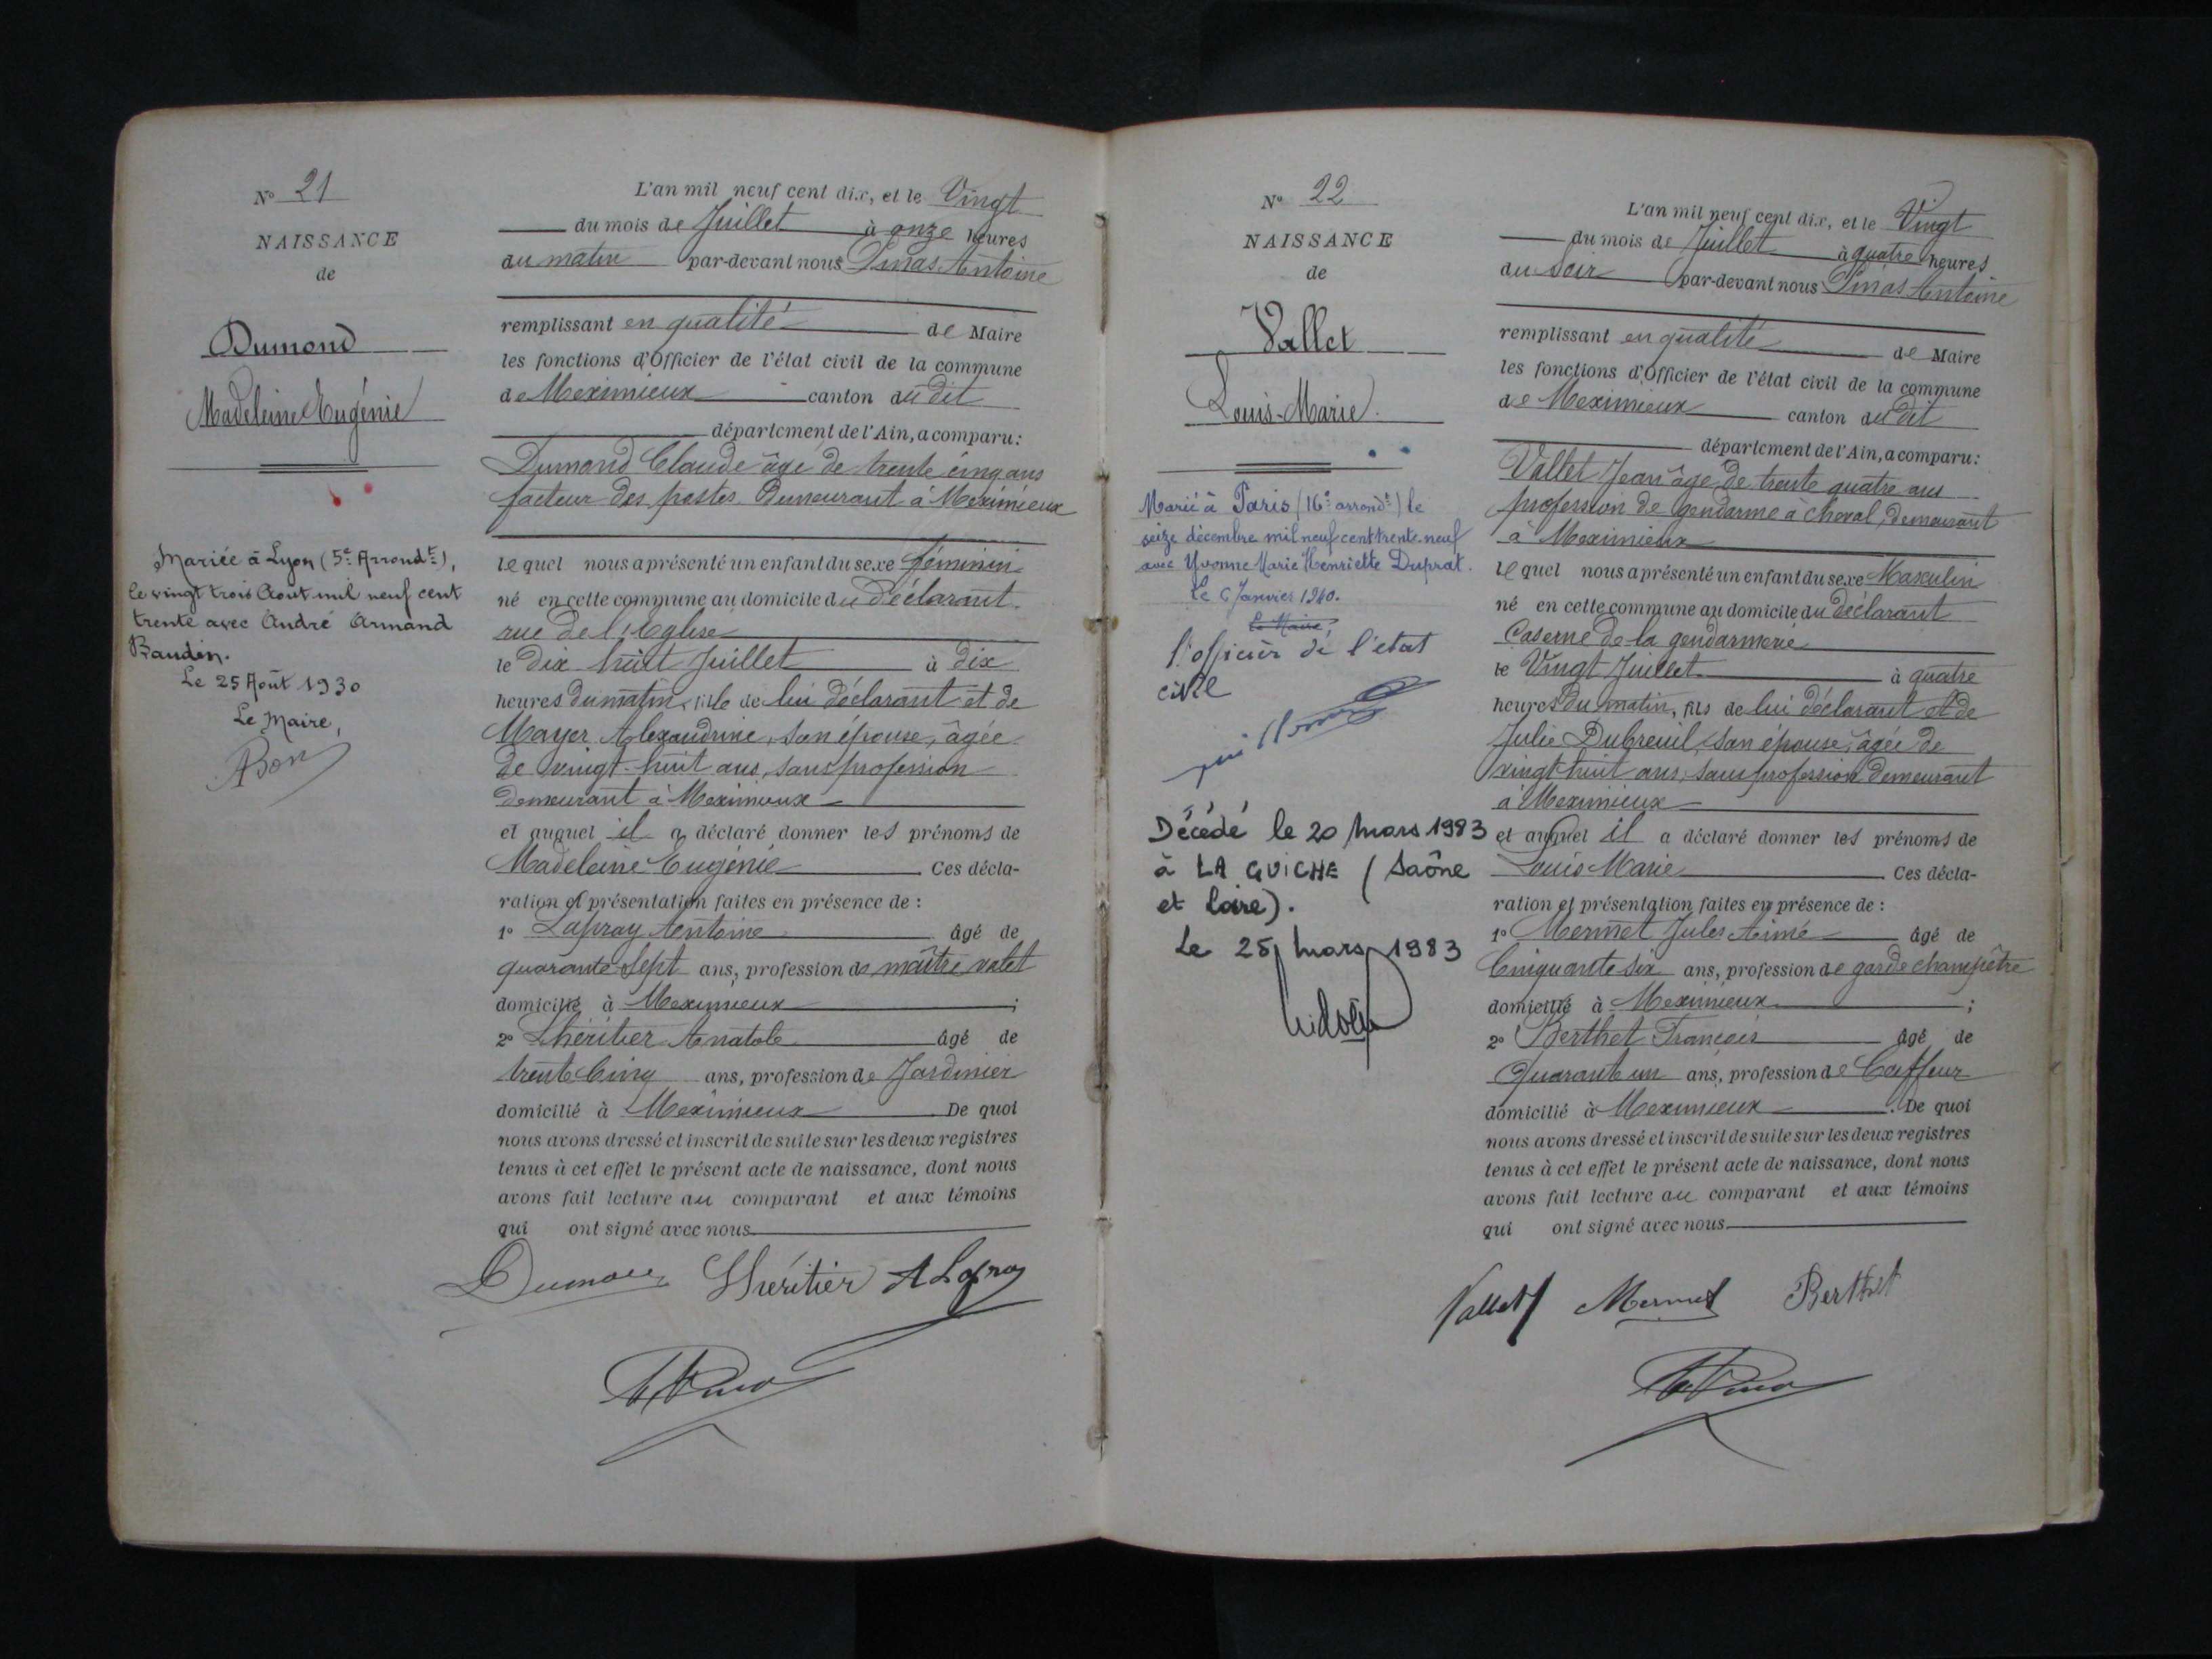 N° 21
NAISSANCE
de
Dumond
Madeleine Eugénie
Mariée à Lyon (5e Arrondt),
le vingt trois Aout mil neuf cent
trente avec André Armand
Baudin.
Le 25 Août 1930
Le Maire,
ABon
L'an mil neuf cent dix, et le Vingt
du mois de Juillet à onze heures
du matin par-devant nous Pinas Antoine
remplissant en qualité de Maire
les fonctions d'Officier de l'état civil de la commune
de Meximieux canton du dit
département de l'Ain, a comparu:
Dumond Claude âgé de trente cinq ans
facteur des postes Demeurant à Meximieux
lequel nous a présenté un enfant du sexe féminin
né en cette commune au domicile du déclarant
rue de l'Eglise
le Dix huit Juillet à dix
heures du matin, fille de lui déclarant et de
Mayer Alexandrine, son épouse, âgée
de vingt-huit ans, sans profession
demeurant à Meximieux
et auquel il a déclaré donner les prénoms de
Madeleine Eugénie Ces décla-
ration et présentation faites en présence de :
1° Lapray Antoine âgé de
quarante sept ans, profession de maître valet
domicilié à Meximieux ;
2° Lhéritier Anatole âgé de
trente Cinq ans, profession de Jardinier
domicilié à Meximieux De quoi
nous avons dressé et inscrit de suite sur les deux registres
tenus à cet effet le présent acte de naissance, dont nous
avons fait lecture au comparant et aux témoins
qui ont signé avec nous
Dumond Lhéritier A Lapray
N° 22
NAISSANCE
de
Vallet
Louis-Marie.
Marié à Paris (16e arrondt) le
seize décembre mil neuf cent trente-neuf
avec Yvonne Marie Henriette Duprat.
Le 6 Janvier 1940.
Le Maire,
l'officier de l'état
civil
Décédé le 20 mars 1983
à LA GUICHE (Saône
et Loire).
Le 25 mars 1983
L'an mil neuf cent dix, et le Vingt
du mois de Juillet à quatre heures
du Soir par-devant nous Pinas Antoine
remplissant en qualité de Maire
les fonctions d'Officier de l'état civil de la commune
de Meximieux canton du dit
département de l'Ain, a comparu:
Vallet Jean âgé de trente quatre ans
profession de gendarme à cheval, demeurant
à Meximieux
lequel nous a présenté un enfant du sexe Masculin
né en cette commune au domicile du déclarant
Caserne de la gendarmerie
le Vingt Juillet à quatre
heures du matin, fils de lui déclarant et de
Julie Dubreuil, son épouse, âgée de
vingt huit ans, sans profession demeurant
à Meximieux
et auquel il a déclaré donner les prénoms de
Louis Marie Ces décla-
ration et présentation faites en présence de :
1° Mermet Jules Aimé âgé de
Cinquante six ans, profession de garde champêtre
domicilié à Meximieux ;
2° Berthet François âgé de
Quarante un ans, profession de Coiffeur
domicilié à Meximieux. De quoi
nous avons dressé et inscrit de suite sur les deux registres
tenus à cet effet le présent acte de naissance, dont nous
avons fait lecture au comparant et aux témoins
qui ont signé avec nous
Vallet Mermet Berthet